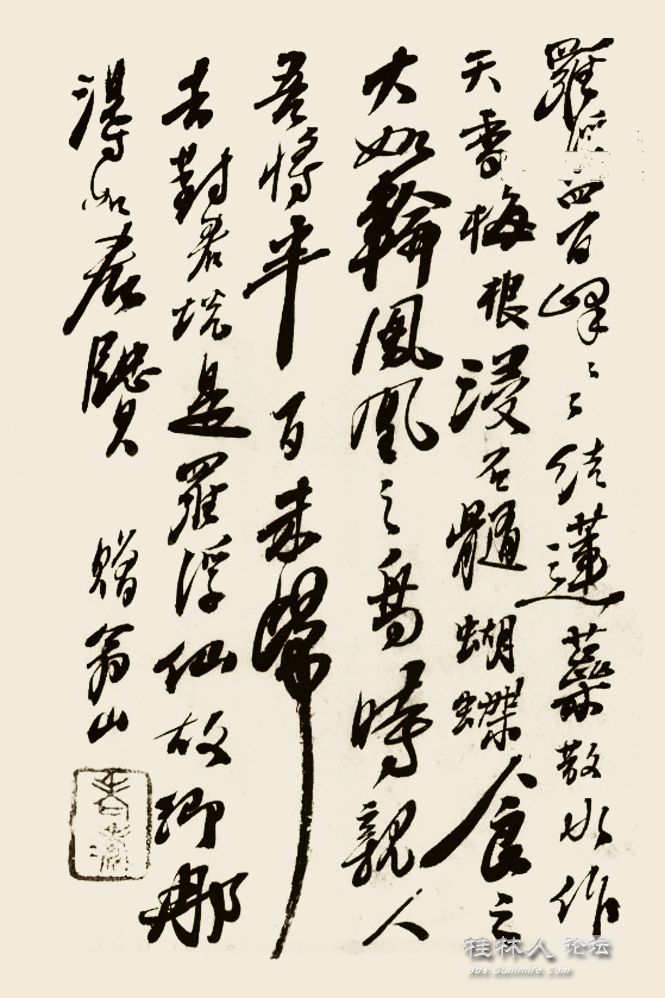 羅浮四百峰〻結蓮蘂散水作
天雪梅根浸石髓蝴蝶食之
大如輪鳳凰之鳥時親人
吾將半百未歸
去對君恍是羅浮仙故鄉那
得如君賢 贈翁山
桂林人论坛
bbs.Guilinlife.com